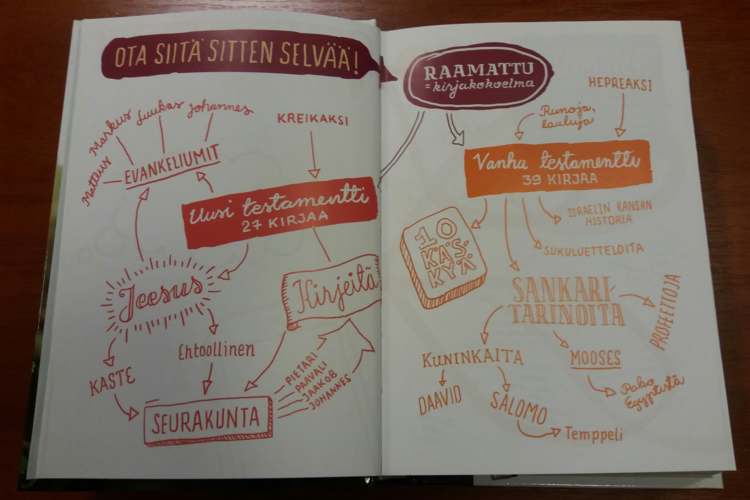 OTA SIITÄ SITTEN SELVÄÄ!
Matteus
Markus
Luukas
Johannes
EVANKELIUMIT
KREIKAKSI
Uusi testamentti
27 KIRJAA
Jeesus
Kirjeitä
Ehtoollinen
KASTE
PIETARI
PAAVALI
JAAKOB
JOHANNES
SEURAKUNTA
RAAMATTU
= kirjakokoelma
HEPREAKSI
Runoja,
lauluja
Vanha testamentti
39 KIRJAA
10
KÄS-
KYÄ
ISRAELIN KANSAN
HISTORIA
SUKULUETTELOITA
SANKARI-
TARINOITA
PROFEETTOJA
KUNINKAITA
MOOSES
DAAVID
SALOMO
Pako
Egyptistä
Temppeli